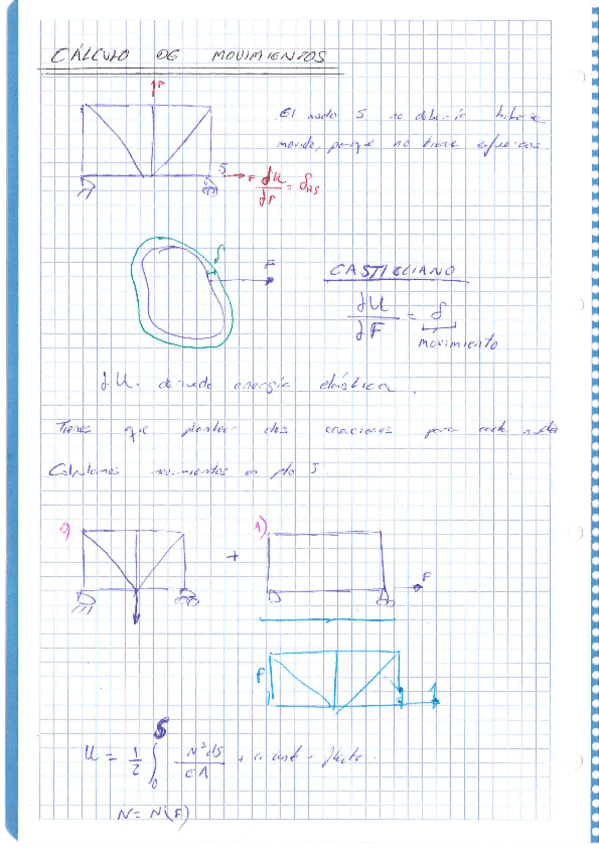 CÁLCULO DE MOVIMIENTOS
P
El nudo 5 no debería haberse
movido, porque no tiene esfuerzos.
5
F ∂U/∂F = δH5
δ
F
CASTIGLIANO
∂U/∂F = δ
movimiento
∂U. derivada energía elástica.
Tienes que plantear dos ecuaciones para cada nudo
Calculamos movimientos en pto 5.
0) + 1)
F
F 1
U = 1/2 ∫₀⁵ N²ds/EA + +
N = N(F)